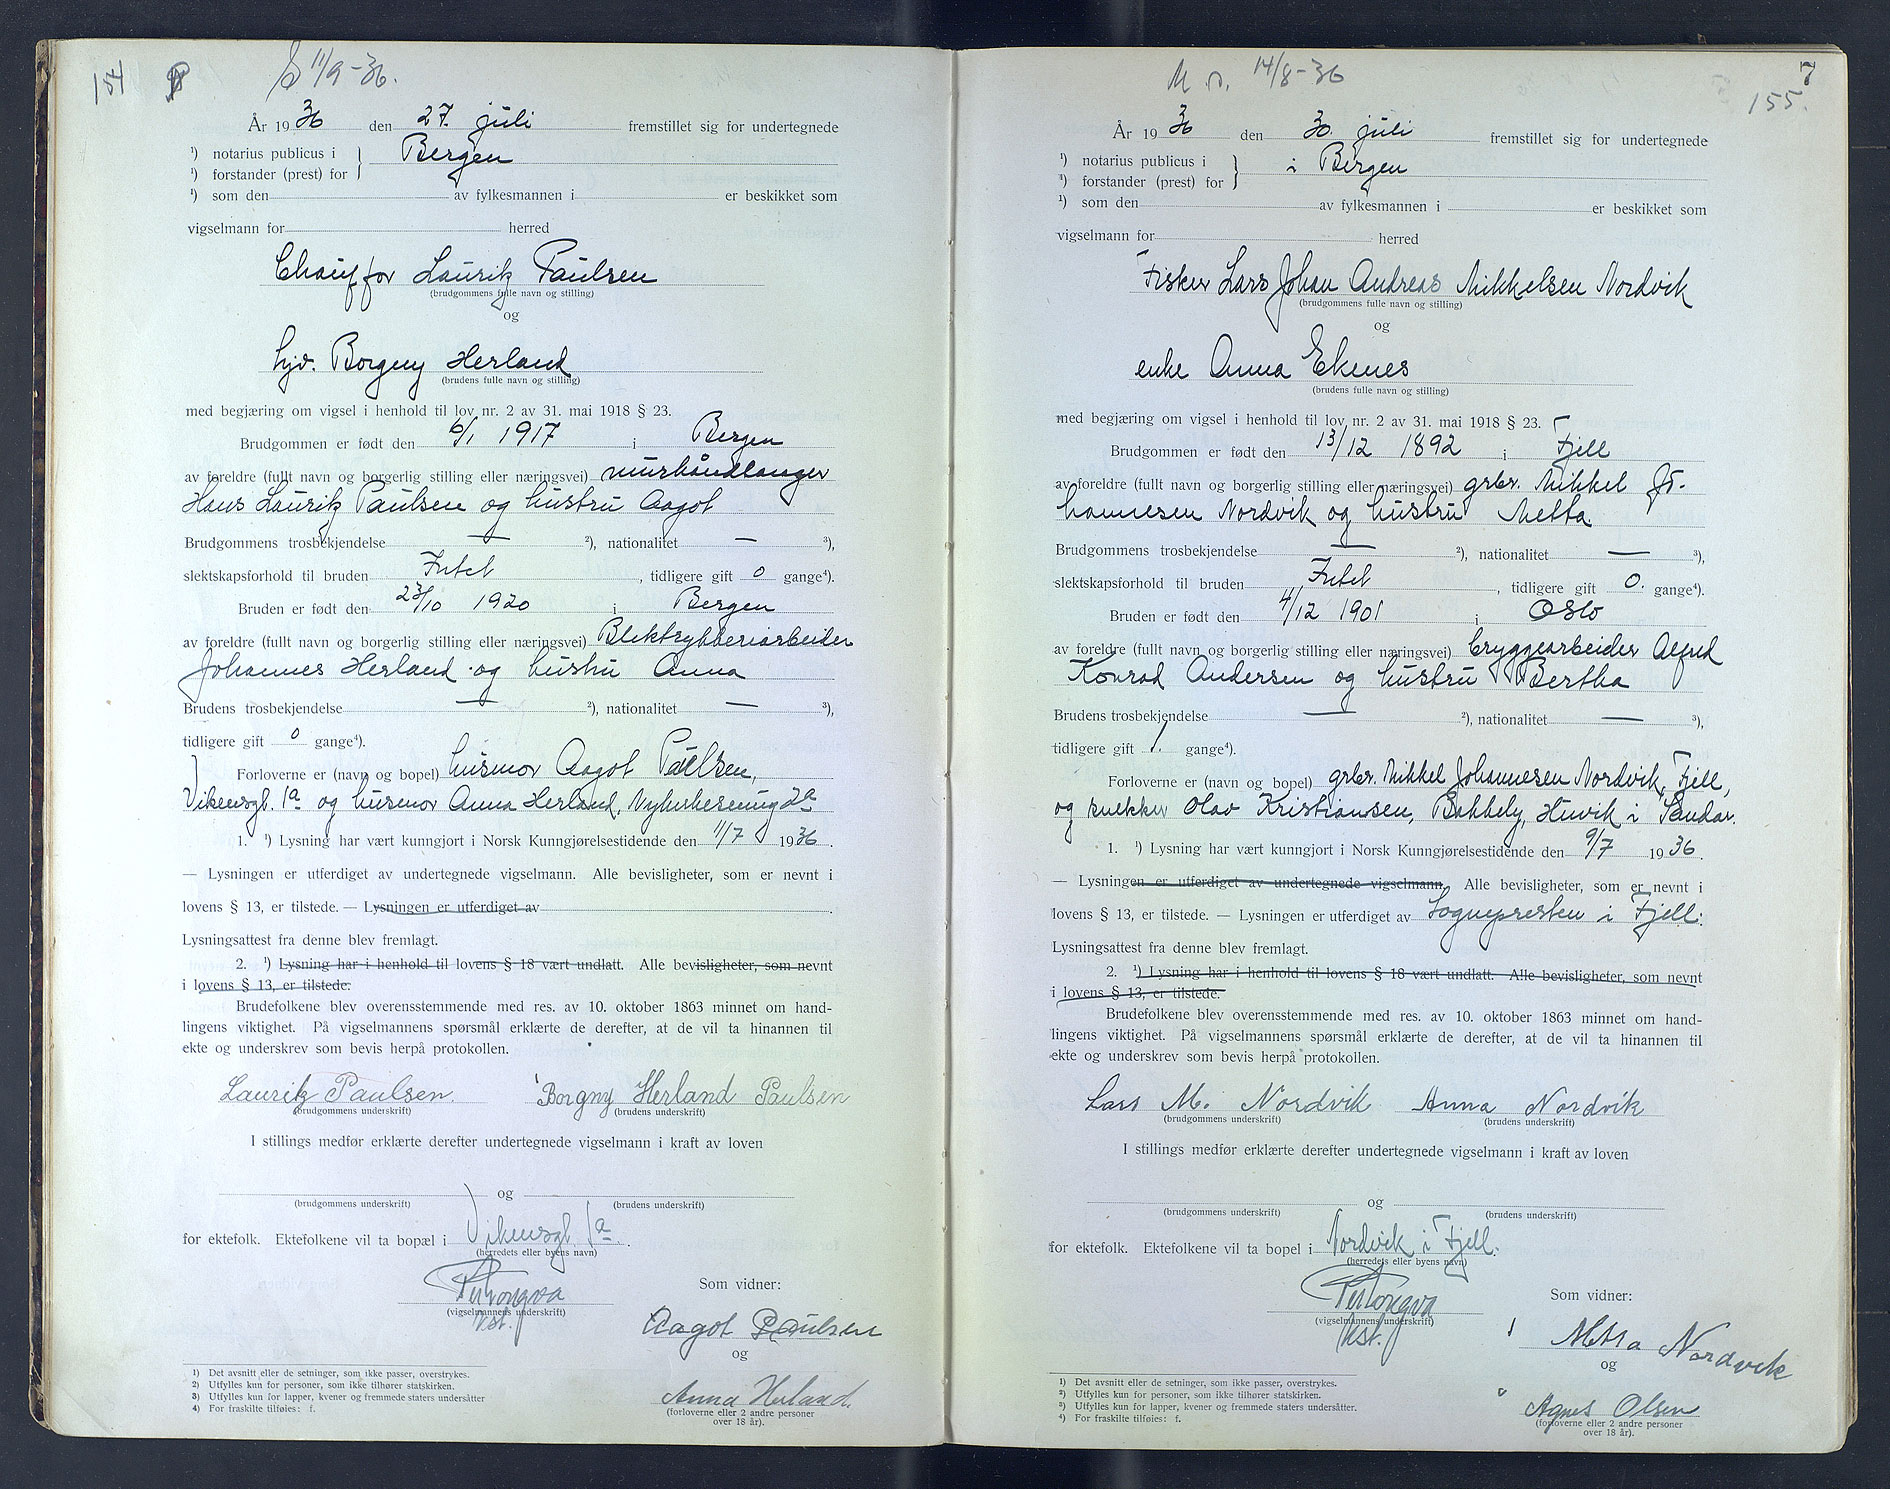 154
S 11/9-36.
År 1936 den 27. juli fremstillet sig for undertegnede
¹) notarius publicus i } Bergen
¹) forstander (prest) for
¹) som den av fylkesmannen i er beskikket som
vigselmann for herred
Chauffør Lauritz Paulsen
(brudgommens fulle navn og stilling)
og
hjv. Borgny Herland
(brudens fulle navn og stilling)
med begjæring om vigsel i henhold til lov nr. 2 av 31. mai 1918 § 23.
Brudgommen er født den 6/1 1917 i Bergen
av foreldre (fullt navn og borgerlig stilling eller næringsvei) murhåndlanger
Hans Lauritz Paulsen og hustru Aagot
Brudgommens trosbekjendelse — ²), nationalitet — ³),
slektskapsforhold til bruden Intet, tidligere gift 0 gange⁴).
Bruden er født den 23/10 1920 i Bergen
av foreldre (fullt navn og borgerlig stilling eller næringsvei) Blektrykkeriarbeider
Johannes Herland og hustru Anna
Brudens trosbekjendelse — ²), nationalitet — ³),
tidligere gift 0 gange⁴).
Forloverne er (navn og bopel) husmor Aagot Paulsen,
Vikensgt. 1a og husmor Anna Herland, 2a
1. ¹) Lysning har vært kunngjort i Norsk Kunngjørelsestidende den 11/7 1936.
— Lysningen er utferdiget av undertegnede vigselmann. Alle bevisligheter, som er nevnt i
lovens § 13, er tilstede. — Lysningen er utferdiget av
Lysningsattest fra denne blev fremlagt.
2. ¹) Lysning har i henhold til lovens § 18 vært undlatt. Alle bevisligheter, som nevnt
i lovens § 13, er tilstede.
Brudefolkene blev overensstemmende med res. av 10. oktober 1863 minnet om hand-
lingens viktighet. På vigselmannens spørsmål erklærte de derefter, at de vil ta hinannen til
ekte og underskrev som bevis herpå protokollen.
Lauritz Paulsen. Borgny Herland Paulsen
(brudgommens underskrift) (brudens underskrift)
I stillings medfør erklærte derefter undertegnede vigselmann i kraft av loven
og
(brudgommens underskrift) (brudens underskrift)
for ektefolk. Ektefolkene vil ta bopæl i Vikensgt. 1a.
(herredets eller byens navn)
Som vidner:
(vigselmannens underskrift)
kst.
Aagot Paulsen
og
Anna Herland.
(forloverne eller 2 andre personer
over 18 år).
1) Det avsnitt eller de setninger, som ikke passer, overstrykes.
2) Utfylles kun for personer, som ikke tilhører statskirken.
3) Utfylles kun for lapper, kvener og fremmede staters undersåtter
4) For fraskilte tilføies: f.
M. 14/8-36
7
155.
År 1936 den 30. juli fremstillet sig for undertegnede
¹) notarius publicus i } i Bergen
¹) forstander (prest) for
¹) som den av fylkesmannen i er beskikket som
vigselmann for herred
Fisker Lars Johan Andreas Mikkelsen Nordvik
(brudgommens fulle navn og stilling)
og
enke Anna Ekenes
(brudens fulle navn og stilling)
med begjæring om vigsel i henhold til lov nr. 2 av 31. mai 1918 § 23.
Brudgommen er født den 13/12 1892 i Fjell
av foreldre (fullt navn og borgerlig stilling eller næringsvei) grbr. Mikkel Jo-
hannesen Nordvik og hustru Metta.
Brudgommens trosbekjendelse — ²), nationalitet — ³),
slektskapsforhold til bruden Intet, tidligere gift 0. gange⁴).
Bruden er født den 4/12 1901 i Oslo
av foreldre (fullt navn og borgerlig stilling eller næringsvei) bryggearbeider Alfred
Konrad Andersen og hustru Bertha
Brudens trosbekjendelse — ²), nationalitet — ³),
tidligere gift 1. gange⁴).
Forloverne er (navn og bopel) grbr. Mikkel Johannesen Nordvik, Fjell,
og snekker Olav Kristiansen, Bakkely, Huvik i Sandar.
1. ¹) Lysning har vært kunngjort i Norsk Kunngjørelsestidende den 9/7 1936.
— Lysningen er utferdiget av undertegnede vigselmann. Alle bevisligheter, som er nevnt i
lovens § 13, er tilstede. — Lysningen er utferdiget av Sognepresten i Fjell.
Lysningsattest fra denne blev fremlagt.
2. ¹) Lysning har i henhold til lovens § 18 vært undlatt. Alle bevisligheter, som nevnt
i lovens § 13, er tilstede.
Brudefolkene blev overensstemmende med res. av 10. oktober 1863 minnet om hand-
lingens viktighet. På vigselmannens spørsmål erklærte de derefter, at de vil ta hinannen til
ekte og underskrev som bevis herpå protokollen.
Lars M. Nordvik Anna Nordvik
(brudgommens underskrift) (brudens underskrift)
I stillings medfør erklærte derefter undertegnede vigselmann i kraft av loven
og
(brudgommens underskrift) (brudens underskrift)
for ektefolk. Ektefolkene vil ta bopel i Nordvik i Fjell.
(herredets eller byens navn)
Som vidner:
(vigselmannens underskrift)
kst.
Metta Nordvik
og
Agnes Olsen
(forloverne eller 2 andre personer
over 18 år).
1) Det avsnitt eller de setninger, som ikke passer, overstrykes.
2) Utfylles kun for personer, som ikke tilhører statskirken.
3) Utfylles kun for lapper, kvener og fremmede staters undersåtter.
4) For fraskilte tilføies: f.